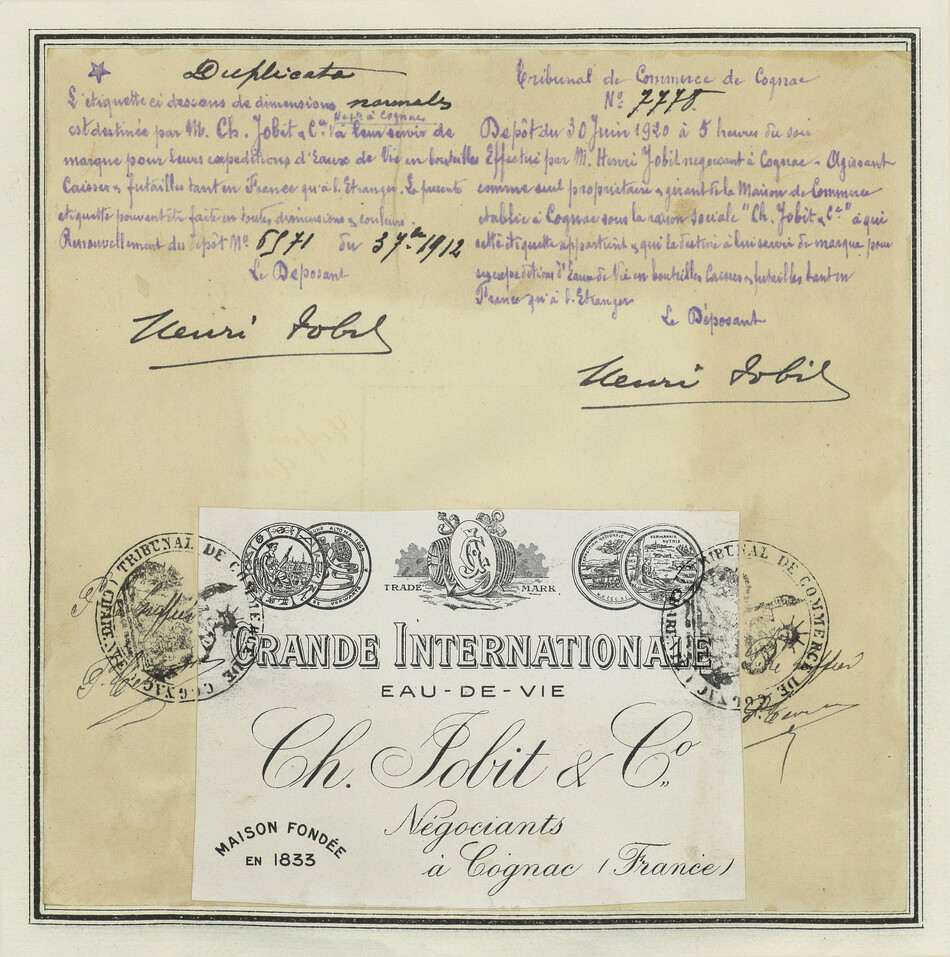 Duplicata
L'étiquette ci dessous de dimensions normales
Négts à Cognac
est destinée par M. Ch. Jobit & Cie à leur servir de
marque pour leurs expéditions d'Eaux de Vie en bouteilles
Caisses & futailles tant en France qu'à l'Etranger. Le présente
etiquette pouvant être faite en toutes dimensions & couleurs.
Renouvellement du dépôt No 6571 du 3 7bre 1912
Le Déposant
Henri Jobit
Tribunal de Commerce de Cognac
No 7778
Dépôt du 30 Juin 1920 à 5 heures du soir
Effectué par M. Henri Jobit négociant à Cognac - Agissant
comme seul propriétaire & gérant de la Maison de Commerce
etablie à Cognac sous la raison sociale "Ch. Jobit & Cie" à qui
cette étiquette appartient & qui la destine à lui servir de marque pour
ses expéditions d'Eaux de Vie en bouteilles Caisses & futailles tant en
France qu'à l'Etranger
Le Déposant
Henri Jobit
TRIBUNAL DE COMMERCE DE COGNAC
TRIBUNAL DE COMMERCE DE COGNAC
TRADE MARK
GRANDE INTERNATIONALE
EAU-DE-VIE
Ch. Jobit & Co.
Négociants
à Cognac (France)
MAISON FONDÉE
EN 1833